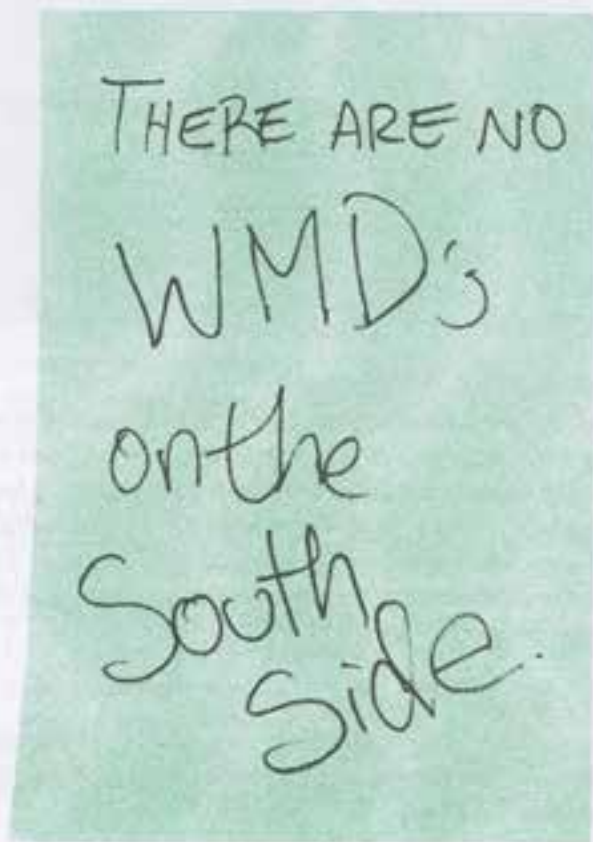 THERE ARE NO
WMD's
on the
South
Side.